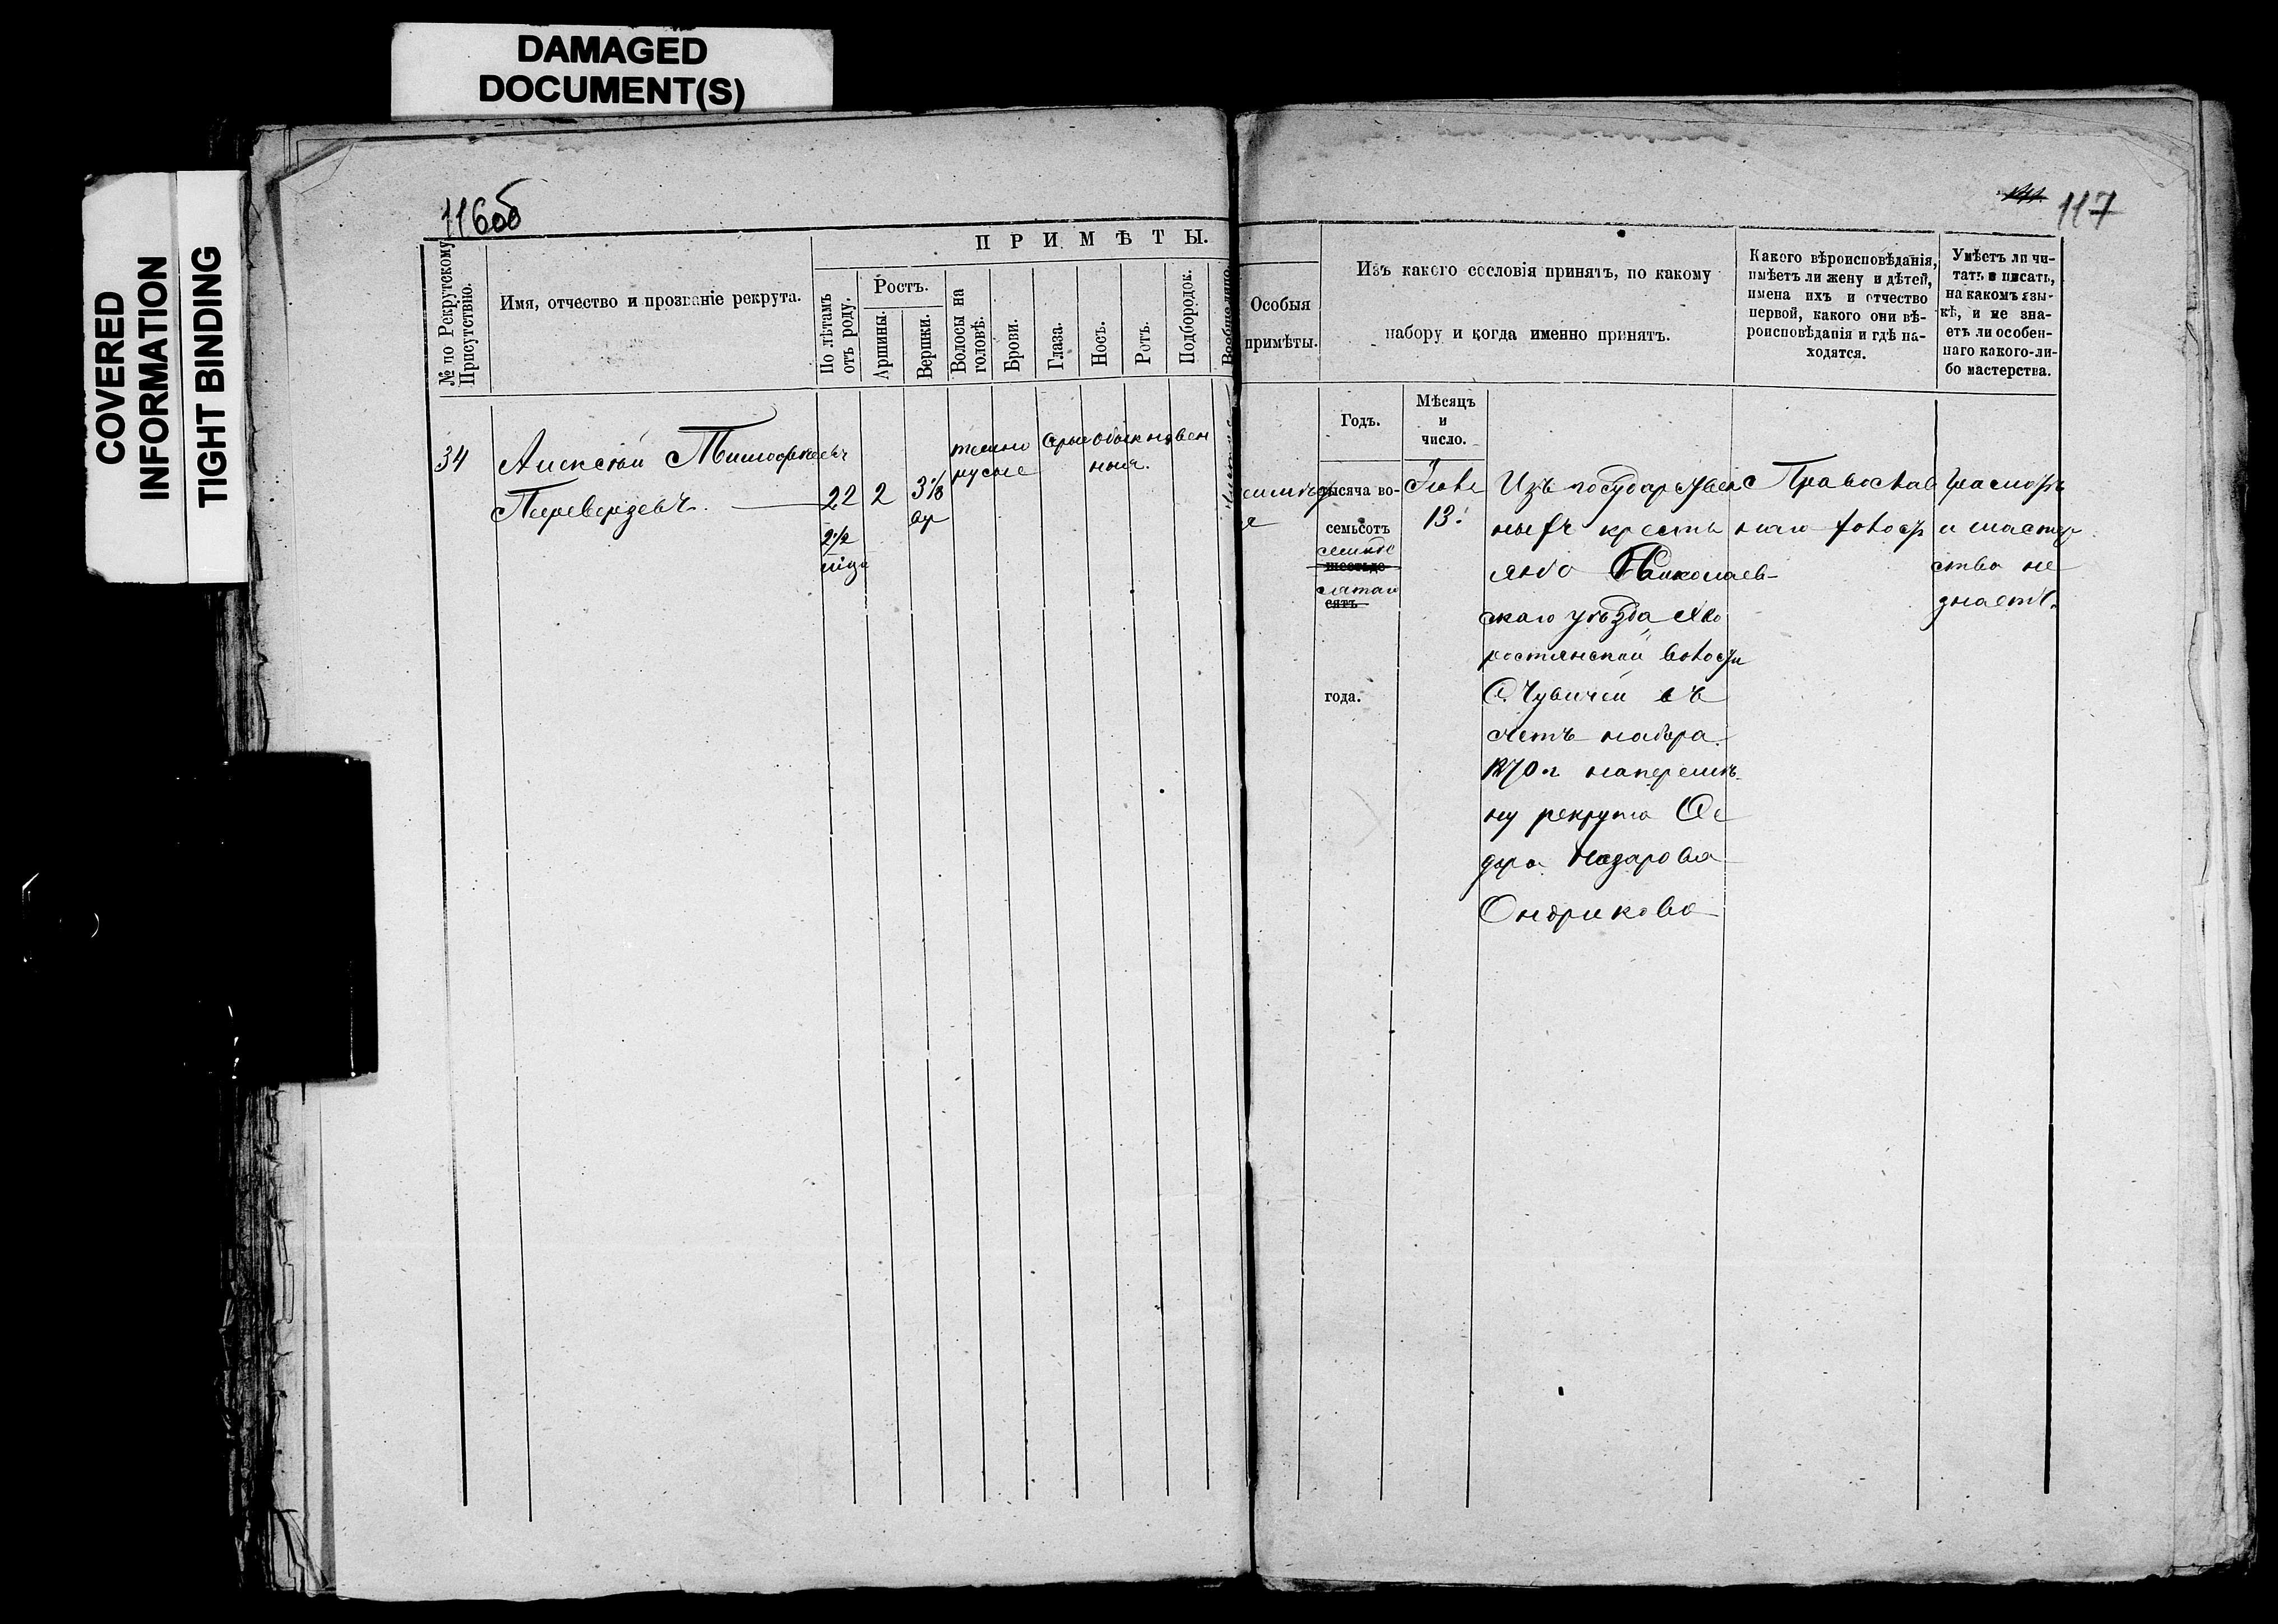 DAMAGED
DOCUMENT(S)
COVERED
INFORMATION
TIGHT BINDING
116об
117
№ по Рекрутскому
Присутствію.
Имя, отчество и прозваніе рекрута.
ПРИМѢТЫ.
По лѣтамъ
отъ роду.
Ростъ.
Аршины.
Вершки.
Волосы на
головѣ.
Брови.
Глаза.
Носъ.
Ротъ.
Подбородок.
Вообще лицо.
Особыя
примѣты.
Изъ какого сословія принятъ, по какому
набору и когда именно принятъ.
Какого вѣроисповѣданія,
имѣетъ ли жену и дѣтей,
имена ихъ и отчество
первой, какого они вѣ-
роисповѣданія и гдѣ на-
ходятся.
Умѣетъ ли чи-
тать и писать,
на какомъ язы-
кѣ, и не зна-
етъ ли особен-
наго какого-ли-
бо мастерства.
Годъ.
Мѣсяцъ
и
число.
34
Алексѣй Тимофѣевъ
Переверзевъ.
22
2 1/2
мѣця
2
3 1/8
вер
темно
русые
сѣрые обыкновен
ные.
тысяча во-
семьсотъ
семьде
шестьде
сятаго
сятъ
года.
Генв
13.
Изъ государствен
ныхъ кресть
янъ Николаев-
скаго уѣзда Хво
ростянской волости
С. Чувичей въ
счетъ набора
1870 г наперемѣ-
ну рекрута Фе
дора Назарова
Ондрикова
Православ
наго холостъ
Грамотѣ
и мастер
ства не
знаетъ.